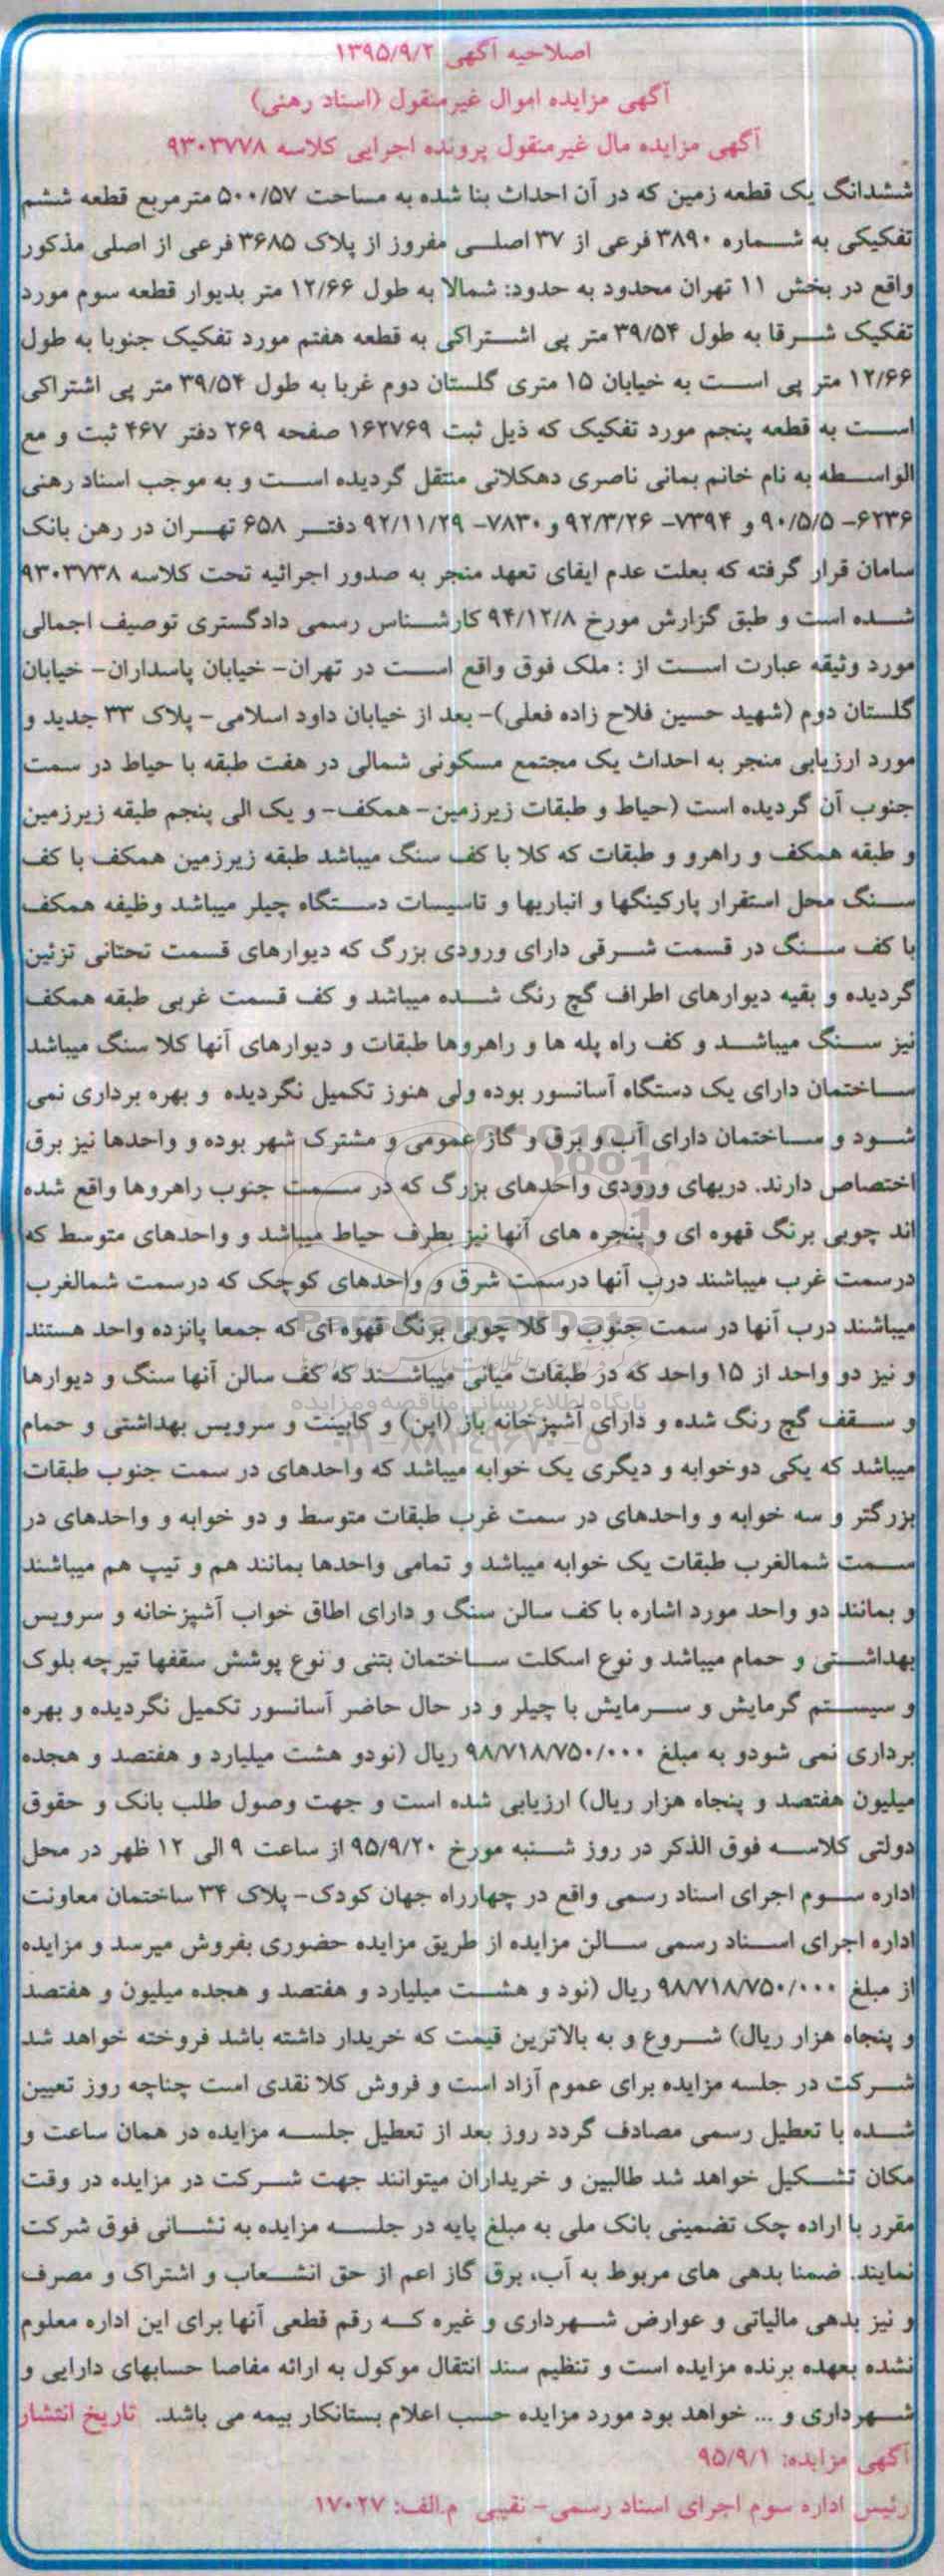 اصلاحیه آگهی ۱۳۹۵/۹/۲
آگهی مزایده اموال غیرمنقول (اسناد رهنی)
آگهی مزایده مال غیرمنقول پرونده اجرایی کلاسه ۹۳۰۳۷۷۸
ششدانگ یک قطعه زمین که در آن احداث بنا شده به مساحت ۵۰۰/۵۷ مترمربع قطعه ششم
تفکیکی به شماره ۳۸۹۰ فرعی از ۳۷ اصلی مفروز از پلاک ۳۶۸۵ فرعی از اصلی مذکور
واقع در بخش ۱۱ تهران محدود به حدود: شمالا به طول ۱۲/۶۶ متر بدیوار قطعه سوم مورد
تفکیک شرقا به طول ۳۹/۵۴ متر پی اشتراکی به قطعه هفتم مورد تفکیک جنوبا به طول
۱۲/۶۶ متر پی است به خیابان ۱۵ متری گلستان دوم غربا به طول ۳۹/۵۴ متر پی اشتراکی
است به قطعه پنجم مورد تفکیک که ذیل ثبت ۱۶۲۷۶۹ صفحه ۲۶۹ دفتر ۴۶۷ ثبت و مع
الواسطه به نام خانم یمانی ناصری دهکلانی منتقل گردیده است و به موجب اسناد رهنی
۶۲۳۶- ۹۰/۵/۵ و ۷۳۹۴- ۹۲/۳/۲۶ و ۷۸۳۰- ۹۲/۱۱/۲۹ دفتر ۶۵۸ تهران در رهن بانک
سامان قرار گرفته که بعلت عدم ایفای تعهد منجر به صدور اجرائیه تحت کلاسه ۹۳۰۳۷۳۸
شده است و طبق گزارش مورخ ۹۴/۱۲/۸ کارشناس رسمی دادگستری توصیف اجمالی
مورد وثیقه عبارت است از : ملک فوق واقع است در تهران- خیابان پاسداران- خیابان
گلستان دوم (شهید حسین فلاح زاده فعلی)- بعد از خیابان داود اسلامی- پلاک ۳۳ جدید و
مورد ارزیابی منجر به احداث یک مجتمع مسکونی شمالی در هفت طبقه با حیاط در سمت
جنوب آن گردیده است (حیاط و طبقات زیرزمین- همکف- و یک الی پنجم طبقه زیرزمین
و طبقه همکف و راهرو و طبقات که کلا با کف سنگ میباشد طبقه زیرزمین همکف با کف
سنگ محل استقرار پارکینگها و انباریها و تاسیسات دستگاه چیلر میباشد وظیفه همکف
با کف سنگ در قسمت شرقی دارای ورودی بزرگ که دیوارهای قسمت تحتانی تزئین
گردیده و بقیه دیوارهای اطراف گچ رنگ شده میباشد و کف قسمت غربی طبقه همکف
نیز سنگ میباشد و کف راه پله ها و راهروها طبقات و دیوارهای آنها کلا سنگ میباشد
ساختمان دارای یک دستگاه آسانسور بوده ولی هنوز تکمیل نگردیده و بهره برداری نمی
شود و ساختمان دارای آب و برق و گاز عمومی و مشترک شهر بوده و واحدها نیز برق
اختصاص دارند. دربهای ورودی واحدهای بزرگ که در سمت جنوب راهروها واقع شده
اند چوبی برنگ قهوه ای و پنجره های آنها نیز بطرف حیاط میباشد و واحدهای متوسط که
درسمت غرب میباشند درب آنها درسمت شرق و واحدهای کوچک که درسمت شمالغرب
میباشند درب آنها در سمت جنوب و کلا چوبی برنگ قهوه ای که جمعا پانزده واحد هستند
و نیز دو واحد از ۱۵ واحد که در طبقات میانی میباشند که کف سالن آنها سنگ و دیوارها
و سقف گچ رنگ شده و دارای آشپزخانه باز (اپن) و کابینت و سرویس بهداشتی و حمام
میباشد که یکی دوخوابه و دیگری یک خوابه میباشد که واحدهای در سمت جنوب طبقات
بزرگتر و سه خوابه و واحدهای در سمت غرب طبقات متوسط و دو خوابه و واحدهای در
سمت شمالغرب طبقات یک خوابه میباشد و تمامی واحدها بمانند هم و تیپ هم میباشند
و بمانند دو واحد مورد اشاره با کف سالن سنگ و دارای اطاق خواب آشپزخانه و سرویس
بهداشتی و حمام میباشد و نوع اسکلت ساختمان بتنی و نوع پوشش سقفها تیرچه بلوک
و سیستم گرمایش و سرمایش با چیلر و در حال حاضر آسانسور تکمیل نگردیده و بهره
برداری نمی شودو به مبلغ ۹۸/۷۱۸/۷۵۰/۰۰۰ ریال (نودو هشت میلیارد و هفتصد و هجده
میلیون هفتصد و پنجاه هزار ریال) ارزیابی شده است و جهت وصول طلب بانک و حقوق
دولتی کلاسه فوق الذکر در روز شنبه مورخ ۹۵/۹/۲۰ از ساعت ۹ الی ۱۲ ظهر در محل
اداره سوم اجرای اسناد رسمی واقع در چهارراه جهان کودک- پلاک ۳۴ ساختمان معاونت
اداره اجرای اسناد رسمی سالن مزایده از طریق مزایده حضوری بفروش میرسد و مزایده
از مبلغ ۹۸/۷۱۸/۷۵۰/۰۰۰ ریال (نود و هشت میلیارد و هفتصد و هجده میلیون و هفتصد
و پنجاه هزار ریال) شروع و به بالاترین قیمت که خریدار داشته باشد فروخته خواهد شد
شرکت در جلسه مزایده برای عموم آزاد است و فروش کلا نقدی است چناچه روز تعیین
شده با تعطیل رسمی مصادف گردد روز بعد از تعطیل جلسه مزایده در همان ساعت و
مکان تشکیل خواهد شد طالبین و خریداران میتوانند جهت شرکت در مزایده در وقت
مقرر با اراده چک تضمینی بانک ملی به مبلغ پایه در جلسه مزایده به نشانی فوق شرکت
نمایند. ضمنا بدهی های مربوط به آب، برق گاز اعم از حق انشعاب و اشتراک و مصرف
و نیز بدهی مالیاتی و عوارض شهرداری و غیره که رقم قطعی آنها برای این اداره معلوم
نشده بعهده برنده مزایده است و تنظیم سند انتقال موکول به ارائه مفاصا حسابهای دارایی و
شهرداری و ... خواهد بود مورد مزایده حسب اعلام بستانکار بیمه می باشد. تاریخ انتشار
آگهی مزایده: ۹۵/۹/۱
رئیس اداره سوم اجرای اسناد رسمی- نقیبی م.الف: ۱۷۰۲۷
ParsNamadData
پایگاه اطلاع رسانی مناقصه و مزایده
۰۲۱-۸۸۳۴۹۶۷۰-۵